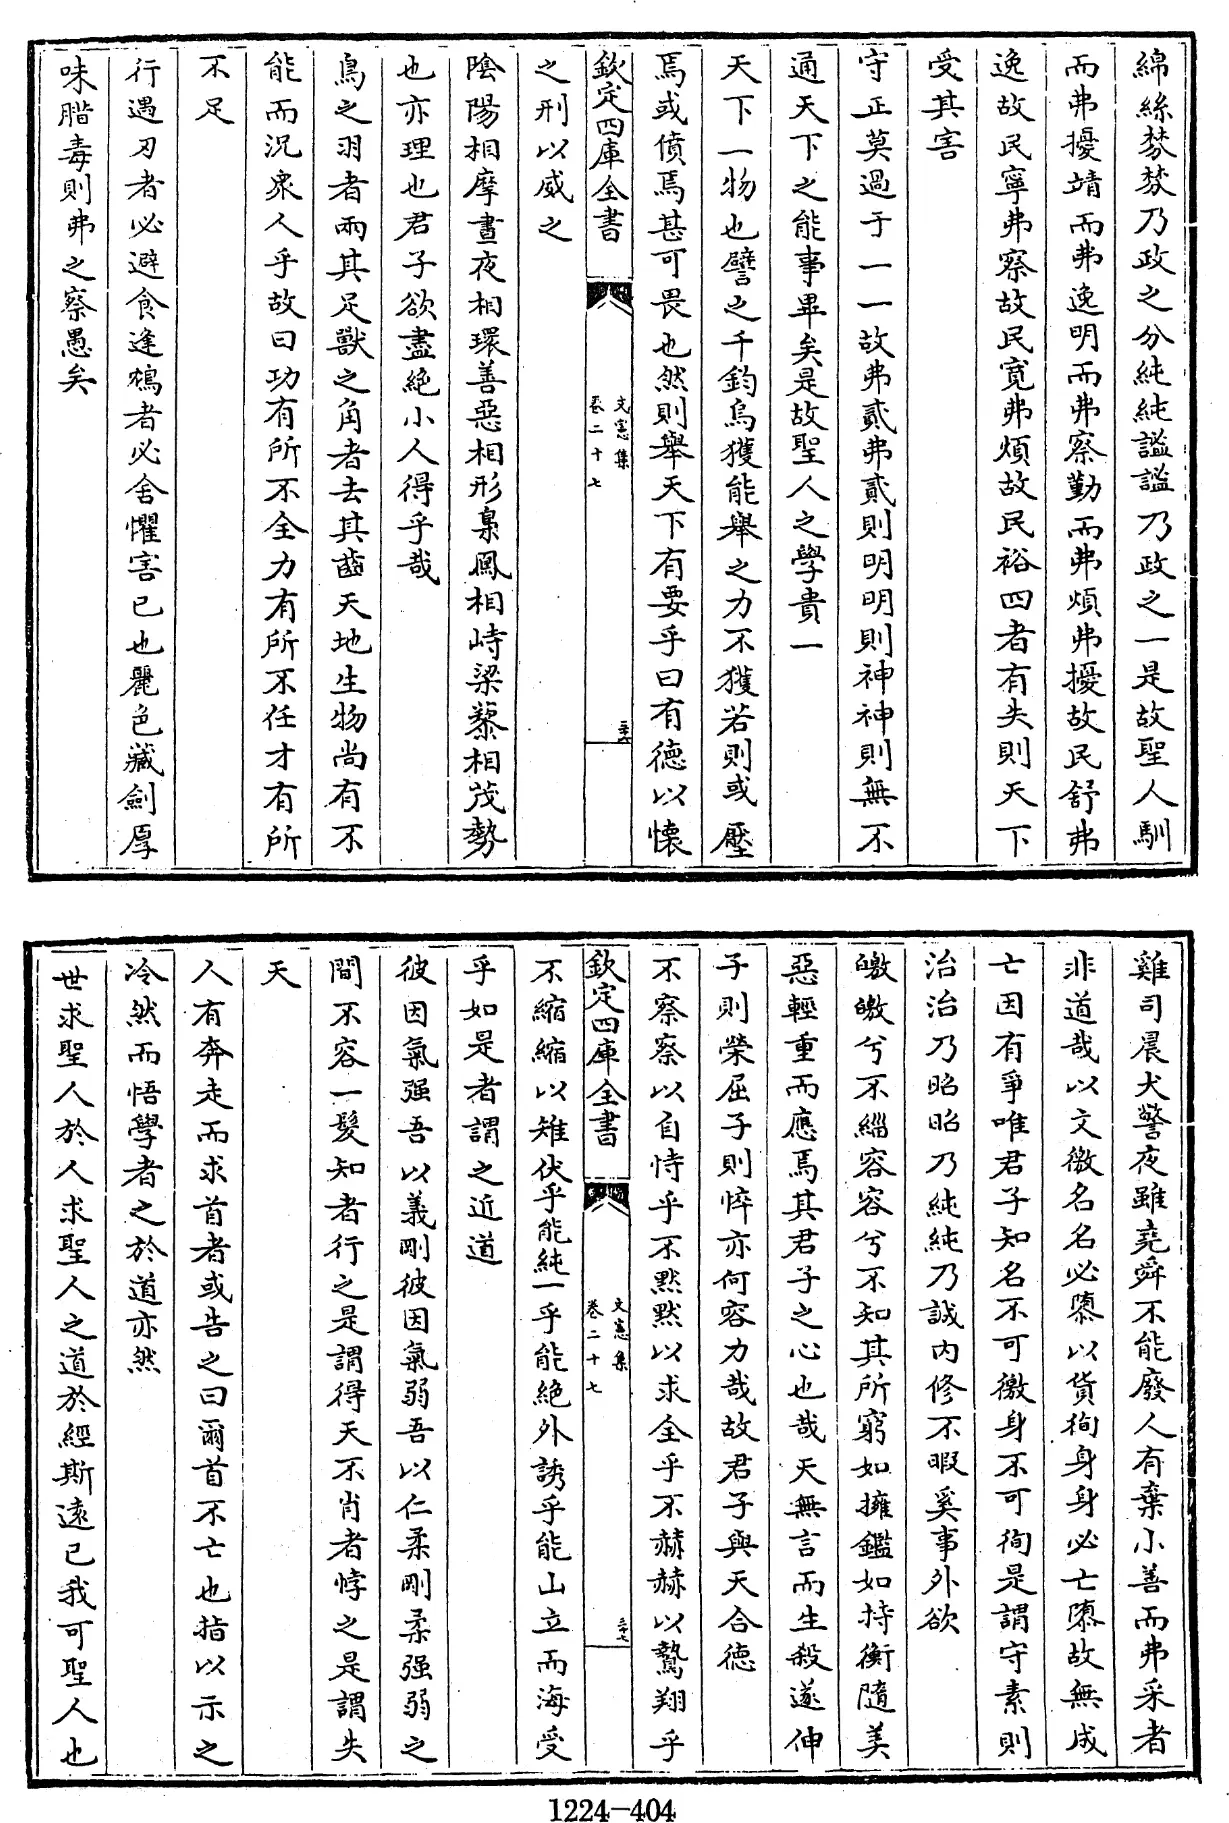 綿絲棼棼乃政之分純純謐謐乃政之一是故聖人馴
而弗擾靖而弗逸明而弗察勤而弗煩弗擾故民舒弗
逸故民寧弗察故民寬弗煩故民裕四者有失則天下
受其害
守正莫過于一一故弗貳弗貳則明明則神神則無不
通天下之能事畢矣是故聖人之學貴一
天下一物也譬之千鈞烏獲能舉之力不獲若則或壓
焉或僨焉甚可畏也然則舉天下有要乎曰有德以懷
欽定四庫全書
文憲集
卷二十七
三十六
之刑以威之
陰陽相摩晝夜相環善惡相形梟鳳相峙梁藜相茂勢
也亦理也君子欲盡絶小人得乎哉
鳥之羽者兩其足獸之角者去其齒天地生物尚有不
能而況衆人乎故曰功有所不全力有所不任才有所
不足
行遇刃者必避食逢鴆者必舍懼害已也麗色藏劍厚
味腊毒則弗之察愚矣
雞司晨犬警夜雖堯舜不能廢人有棄小善而弗采者
非道哉以文徼名名必隳以貨徇身身必亡隳故無成
亡因有爭唯君子知名不可徼身不可徇是謂守素則
治治乃昭昭乃純純乃誠内修不暇奚事外欲
皦皦兮不緇容容兮不知其所窮如擁鑑如持衡隨美
惡輕重而應焉其君子之心也哉天無言而生殺遂伸
子則榮屈子則悴亦何容力哉故君子與天合德
不察察以自恃乎不黙黙以求全乎不赫赫以鷙翔乎
欽定四庫全書
文憲集
卷二十七
三十七
不縮縮以雉伏乎能純一乎能絶外誘乎能山立而海受
乎如是者謂之近道
彼因氣强吾以義剛彼因氣弱吾以仁柔剛柔强弱之
間不容一髮知者行之是謂得天不肖者悖之是謂失
天
人有奔走而求首者或告之曰爾首不亡也指以示之
冷然而悟學者之於道亦然
世求聖人於人求聖人之道於經斯遠已我可聖人也
1224-404